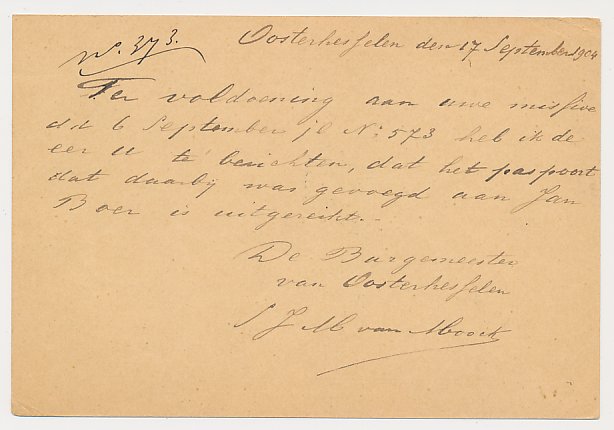 No. 373.
Oosterhesselen den 17 September 1904
Ter voldoening aan uwe missive
dd 6 September jl No: 573 heb ik de
eer U te berichten, dat het paspoort
dat daarbij was gevoegd aan Jan
Boer is uitgereikt.-
De Burgemeester
van Oosterhesselen
S J M van Moock